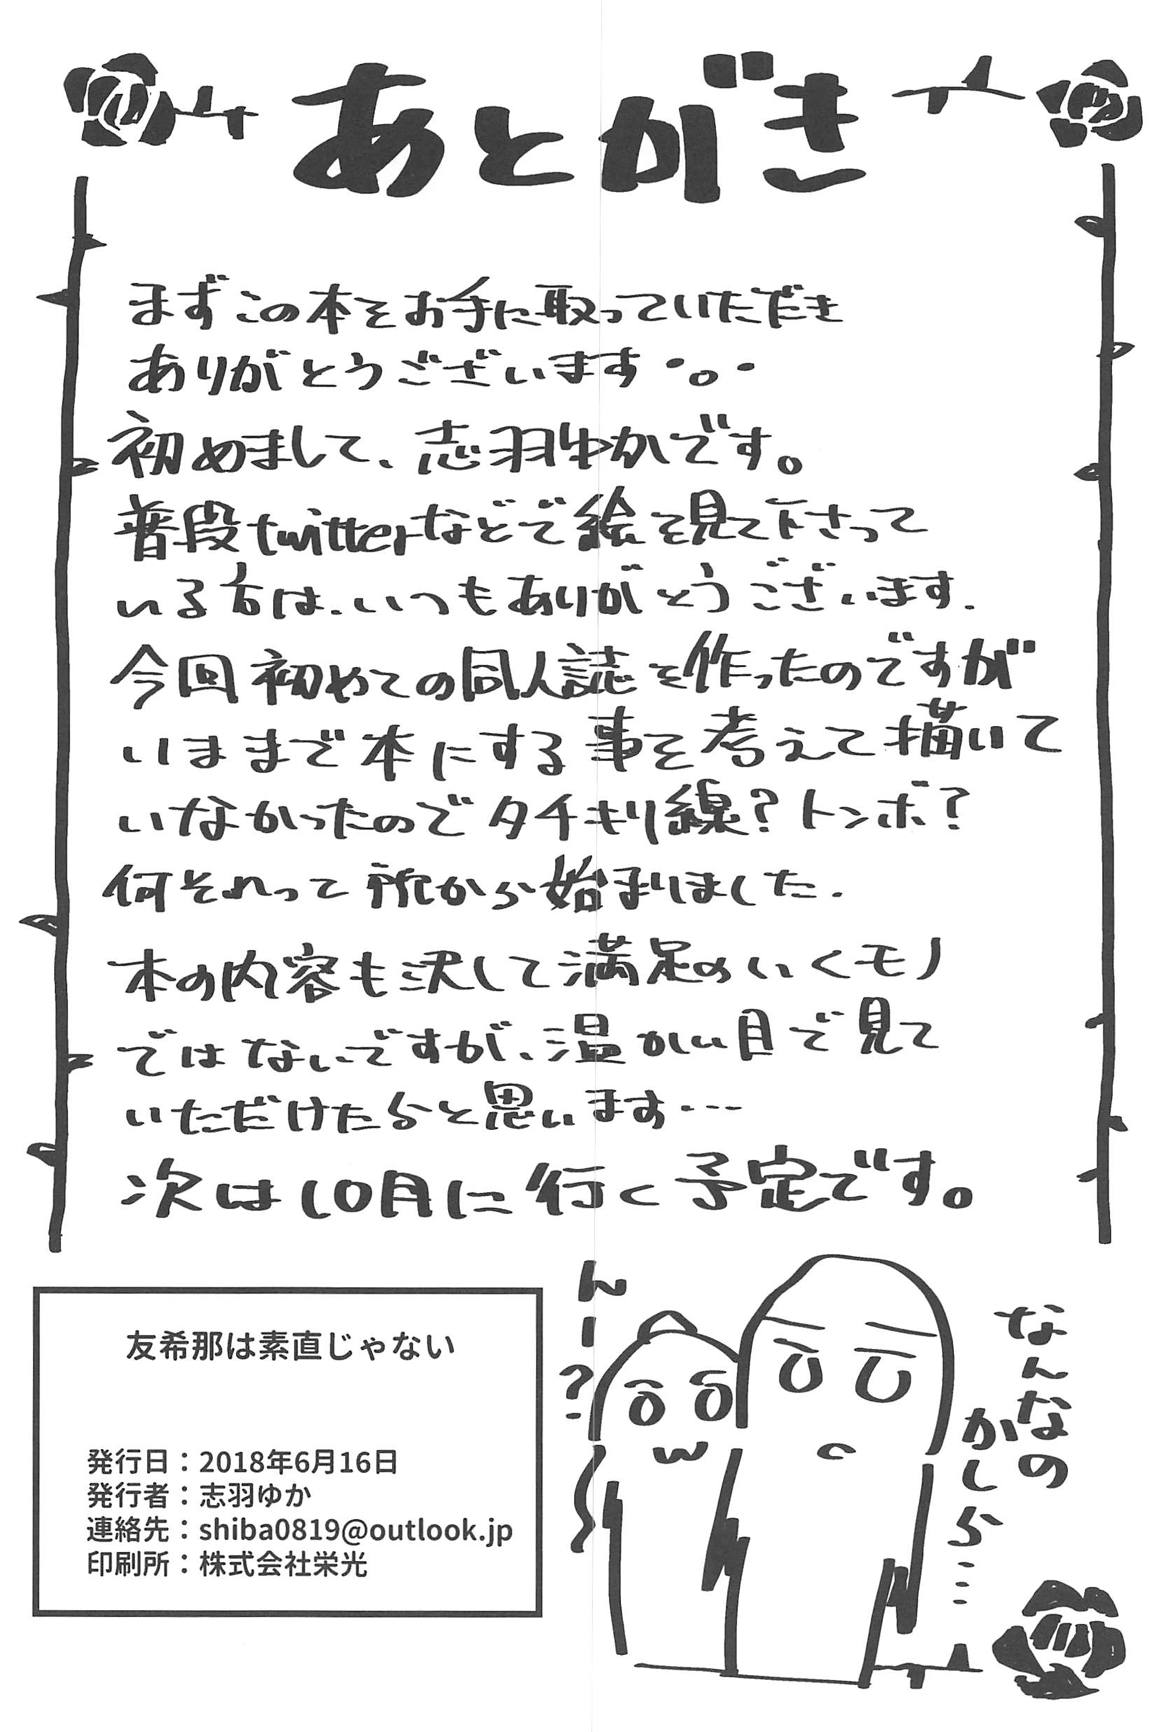 あとがき
まずこの本をお手に取っていただき
ありがとうございます・。・
初めまして、志羽ゆかです。
普段twitterなどで絵を見て下さって
いる方は、いつもありがとうございます。
今回初めての同人誌を作ったのですが
いままで本にする事を考えて描いて
いなかったのでタチキリ線？トンボ？
何それって所から始まりました。
本の内容も決して満足のいくモノ
ではないですが、温かい目で見て
いただけたらと思います…
次は10月に行く予定です。
んー？
なんなの
かしら…
友希那は素直じゃない
発行日：2018年6月16日
発行者：志羽ゆか
連絡先：shiba0819@outlook.jp
印刷所：株式会社栄光